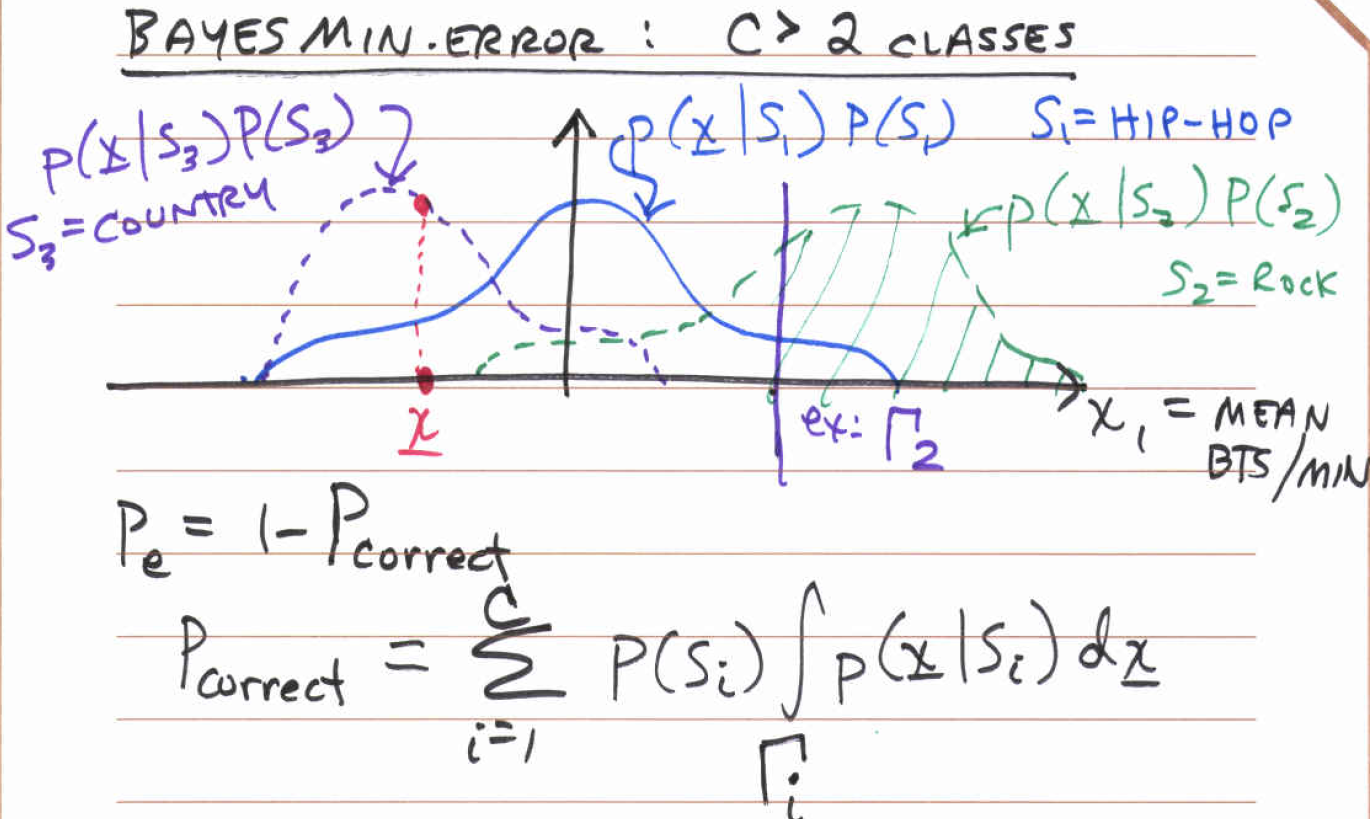 BAYES MIN. ERROR : C > 2 CLASSES
p(x|S₃)P(S₃)
S₃ = COUNTRY
p(x|S₁) P(S₁)
S₁ = HIP-HOP
p(x|S₂) P(S₂)
S₂ = ROCK
x
ex: Γ₂
x₁ = MEAN
BTS/MIN
Pe = 1 - Pcorrect
Pcorrect = Σ_{i=1}^{C} P(Si) ∫_{Γi} p(x|Si) dx